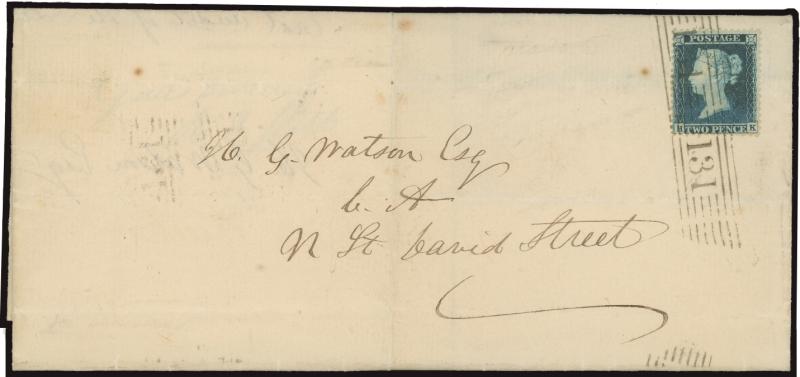 POSTAGE
TWO PENCE
K
131
H. G. Watson Esq
C. A
N St David Street